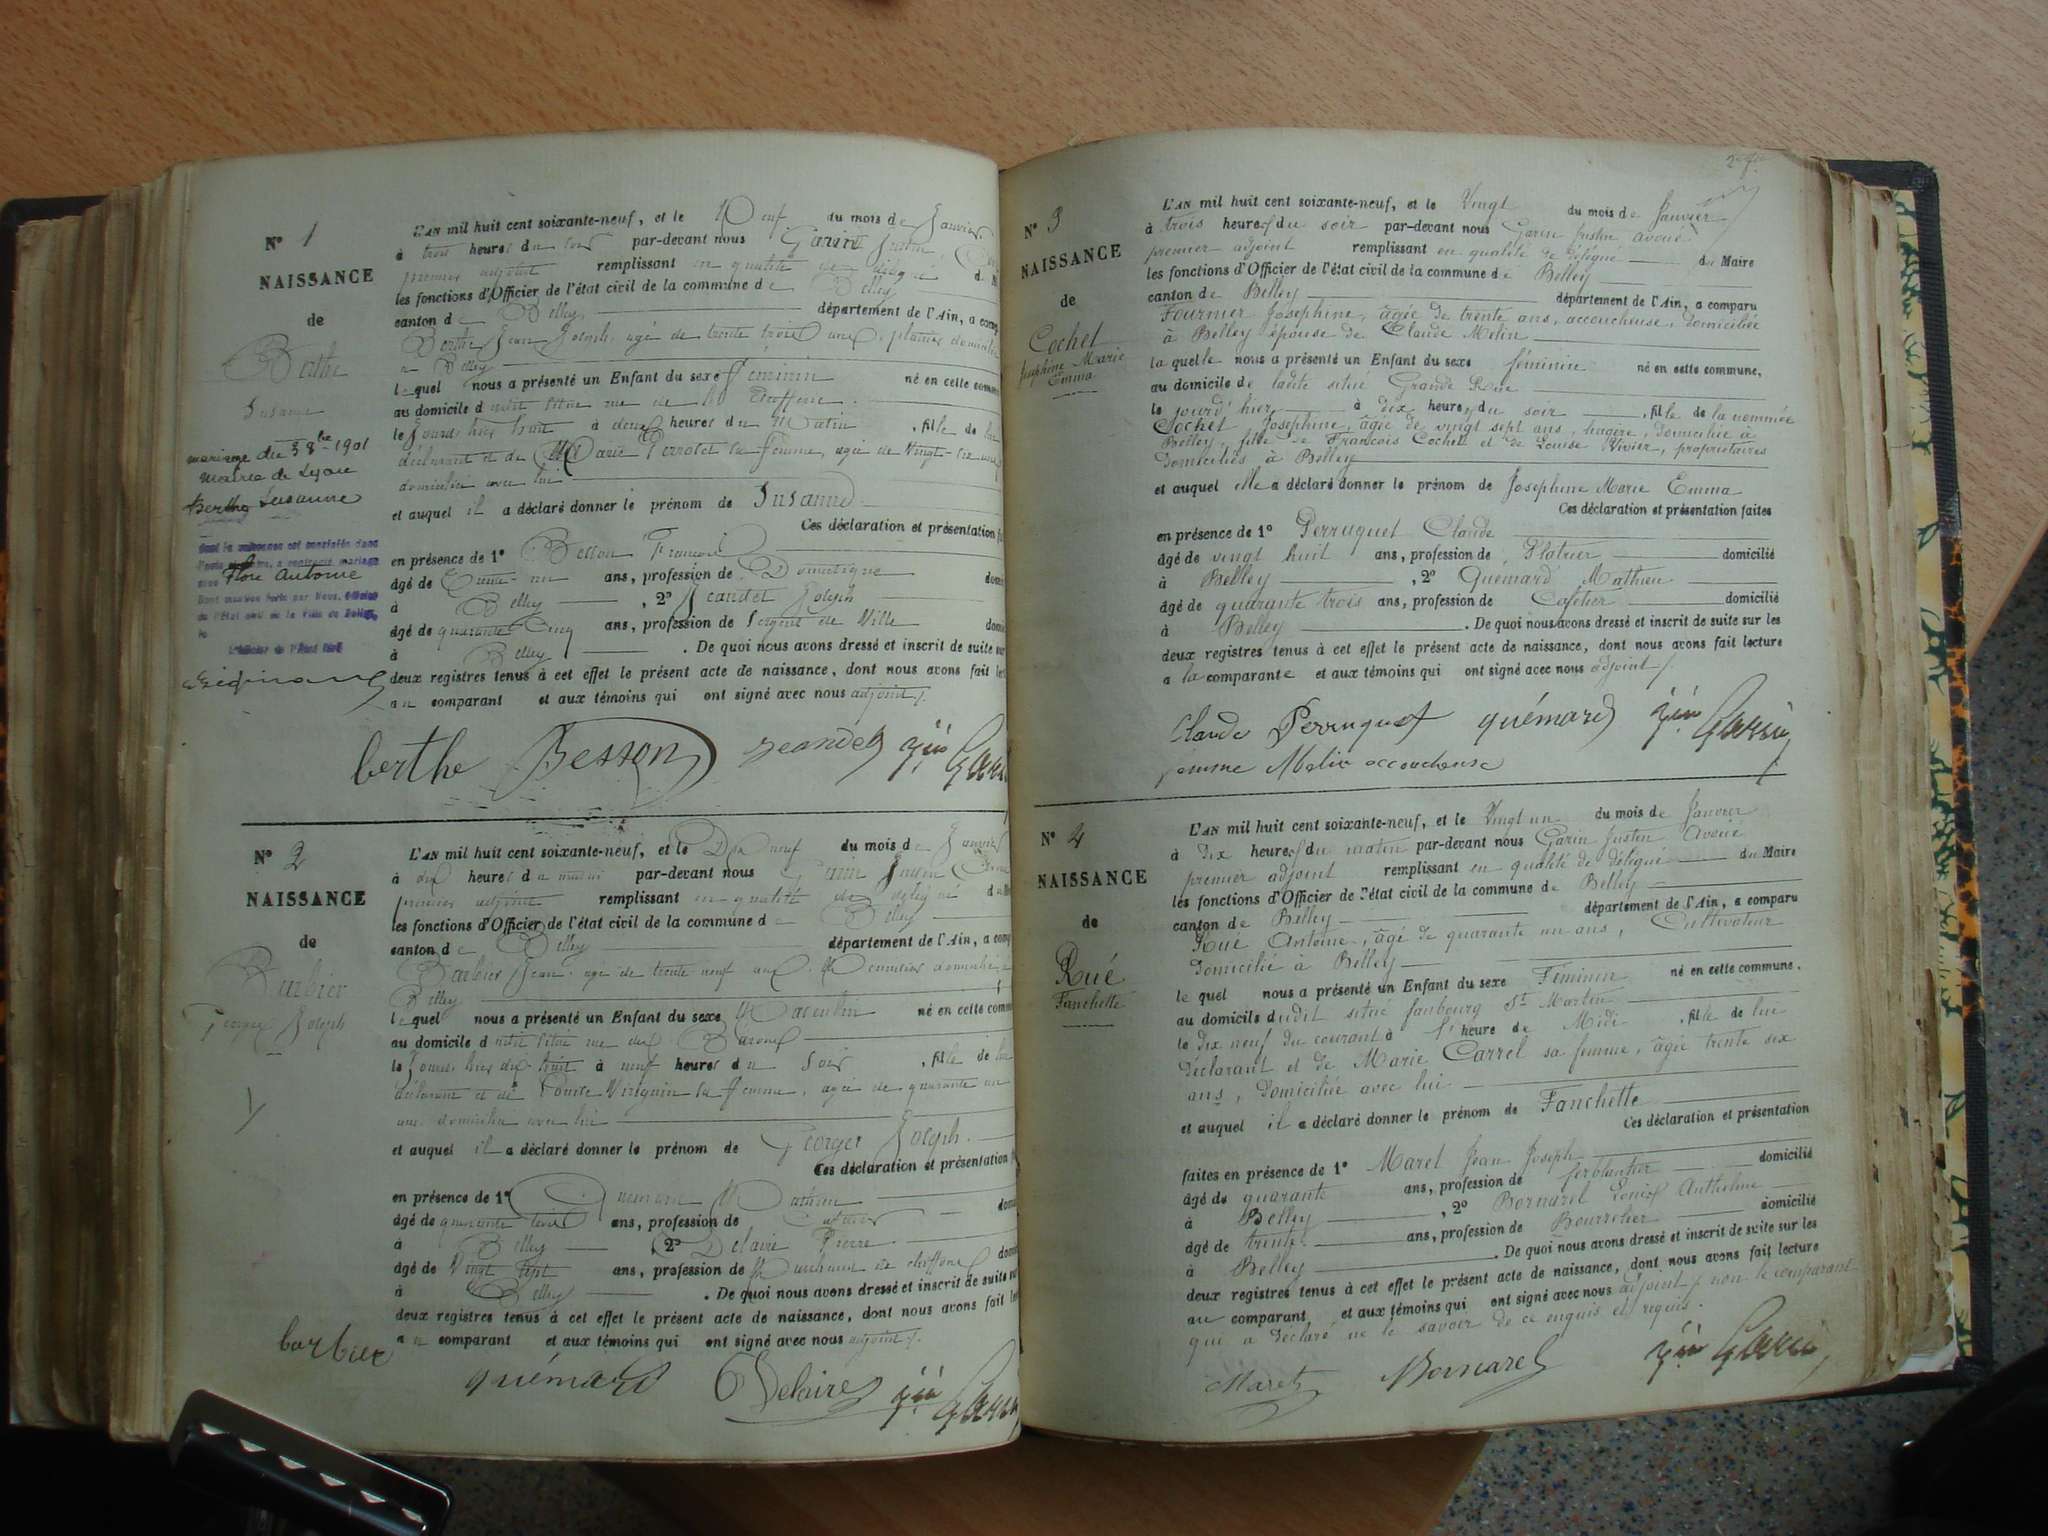 N° 1
NAISSANCE
de
Berthe
Susanne
mariage du 5 8bre 1901
Mairie de Lyon
Berthe Susanne
Flore Antoine
L'AN mil huit cent soixante-neuf, et le Neuf du mois de Janvier
à trois heures du soir par-devant nous Garin Justin
premier adjoint remplissant en qualité de délégué d
les fonctions d'Officier de l'état civil de la commune de Belley
canton de Belley département de l'Ain, a comp
Berthe Jean Joseph, agé de trente trois ans, platrier domicilié
a Belley
lequel nous a présenté un Enfant du sexe féminin né en cette comm
au domicile d
le jourd'hier huit à deux heures du Matin , fille de lui
déclarant et de Marie Perrotet sa femme, agée de Vingt-six ans
domiciliée avec lui
et auquel il a déclaré donner le prénom de Susanne
Ces déclaration et présentation f
en présence de 1° Besson François
âgé de Trente-un ans, profession de Domestique dom
à Belley , 2° Jeandet Joseph
âgé de quarante Cinq ans, profession de Sergent de Ville domi
à Belley . De quoi nous avons dressé et inscrit de suite sur
deux registres tenus à cet effet le présent acte de naissance, dont nous avons fait le
au comparant et aux témoins qui ont signé avec nous adjoint /.
berthe Besson Jeandet Jin Garin
N° 2
NAISSANCE
de
Barbier
Georges Joseph
L'AN mil huit cent soixante-neuf, et le Dix neuf du mois de Janvier
à dix heures du matin par-devant nous Garin Justin
premier adjoint remplissant en qualité de délégué du
les fonctions d'Officier de l'état civil de la commune de Belley
canton de Belley département de l'Ain, a comp
Barbier Jean, agé de trente neuf ans, Menuisier domicilié à
Belley
lequel nous a présenté un Enfant du sexe Masculin né en cette comm
au domicile dudit situé rue des Barons
le Jourd'hier dix huit à neuf heures du soir , fils de lui
déclarant et de Louise Vinguin sa femme, agée de quarante un
ans domiciliée avec lui
et auquel il a déclaré donner le prénom de Georges Joseph
Ces déclaration et présentation f
en présence de 1° Quémard Mathieu
âgé de quarante trois ans, profession de Cafetier domi
à Belley , 2° Delaire Pierre
âgé de Vingt sept ans, profession de Marchand de chiffons dom
à Belley . De quoi nous avons dressé et inscrit de suite sur
deux registres tenus à cet effet le présent acte de naissance, dont nous avons fait le
au comparant et aux témoins qui ont signé avec nous adjoint /.
barbier quémard Delaire Jin Garin
N° 3
NAISSANCE
de
Cochet
Joséphine Marie
Emma
L'AN mil huit cent soixante-neuf, et le Vingt du mois de Janvier
à trois heures du soir par-devant nous Garin Justin avoué
premier adjoint remplissant en qualité de délégué du Maire
les fonctions d'Officier de l'état civil de la commune de Belley
canton de Belley département de l'Ain, a comparu
Fournier Joséphine, âgée de trente ans, accoucheuse, domiciliée
à Belley épouse de Claude Melin
laquelle nous a présenté un Enfant du sexe féminin né en cette commune,
au domicile de ladite situé Grande Rue
le jourd'hier à dix heures du soir , fille de la nommée
Cochet Joséphine, agée de vingt sept ans, lingère, domiciliée à
Belley, fille de François Cochet et de Louise Vivier, propriétaires
domiciliés à Belley
et auquel elle a déclaré donner le prénom de Joséphine Marie Emma
Ces déclaration et présentation faites
en présence de 1° Perruquet Claude
âgé de vingt huit ans, profession de Platrier domicilié
à Belley , 2° Quémard Mathieu
âgé de quarante trois ans, profession de Cafetier domicilié
à Belley . De quoi nous avons dressé et inscrit de suite sur les
deux registres tenus à cet effet le présent acte de naissance, dont nous avons fait lecture
a la comparante et aux témoins qui ont signé avec nous adjoint /.
Claude Perruquet quémard Jin Garin
femme Melin accoucheuse
N° 4
NAISSANCE
de
Rué
Fanchette
L'AN mil huit cent soixante-neuf, et le Vingt un du mois de Janvier
à dix heures du matin par-devant nous Garin Justin Avoué
premier adjoint remplissant en qualité de délégué du Maire
les fonctions d'Officier de l'état civil de la commune de Belley
canton de Belley département de l'Ain, a comparu
Rué Antoine, âgé de quarante un ans, Cultivateur
domicilié à Belley
lequel nous a présenté un Enfant du sexe Féminin né en cette commune,
au domicile dudit situé faubourg St Martin
le dix neuf du courant à l'heure de Midi , fille de lui
déclarant et de Marie Carrel sa femme, âgée trente six
ans, domiciliée avec lui
et auquel il a déclaré donner le prénom de Fanchette
Ces déclaration et présentation
faites en présence de 1° Maret Jean Joseph
âgé de quarante ans, profession de ferblantier domicilié
à Belley , 2° Bornarel Louis Anthelme
âgé de trente ans, profession de Bourrelier domicilié
à Belley . De quoi nous avons dressé et inscrit de suite sur les
deux registres tenus à cet effet le présent acte de naissance, dont nous avons fait lecture
au comparant et aux témoins qui ont signé avec nous adjoint / non le comparant
qui a déclaré ne le savoir de ce enquis et requis.
Maret Bornarel Jin Garin